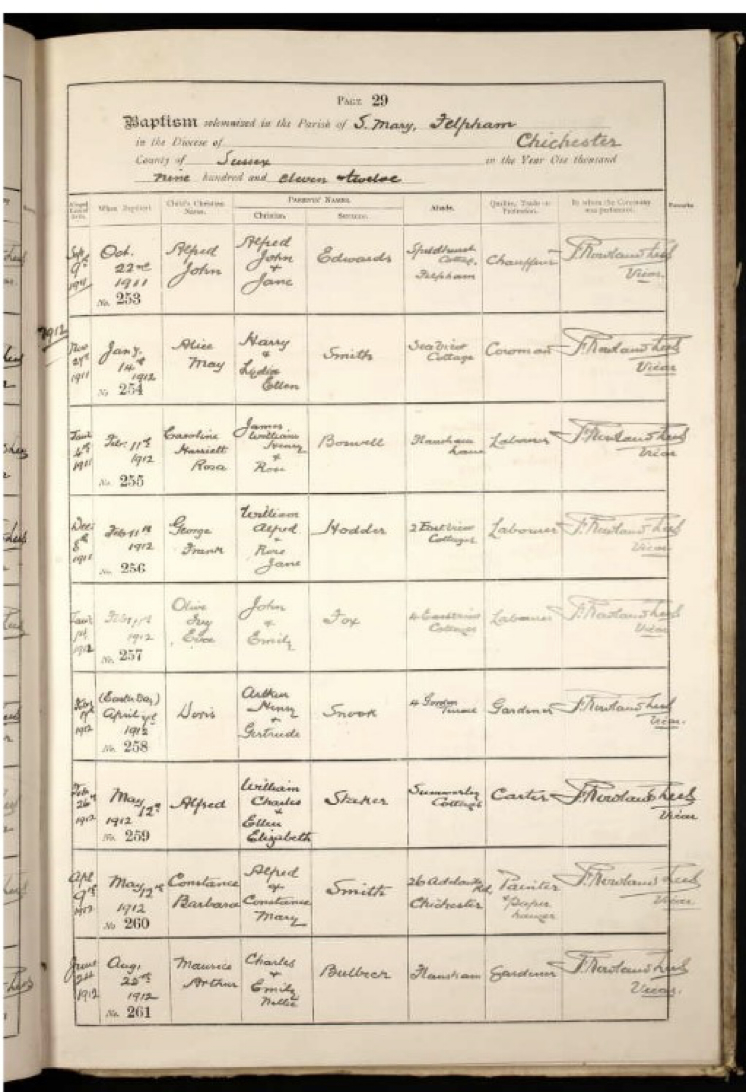 PAGE 29
Baptism solemnised in the Parish of S. Mary, Felpham
in the Diocese of Chichester
County of Sussex in the Year One thousand
nine hundred and eleven & twelve
When Baptised. Child's Christian Name. PARENTS' NAMES. Christian. Surname. Abode. Quality, Trade or Profession. By whom the Ceremony was performed. Remarks
Sept 9th 1911
Oct. 22nd 1911
No. 253
Alfred John
Alfred John & Jane
Edwards
Cottage, Felpham
Chauffeur
F. Rowland
Vicar.
1912
Nov 1911
Jany. 14th 1912
No 254
Alice May
Harry & Lydia Ellen
Smith
Sea View Cottage
Cowman
F. Rowland
Vicar
4th 1911
Feb. 11th 1912
No. 255
Caroline Harriett Rosa
James William Henry & Rose
Boswell
Flansham Lane
Laborer
F. Rowland
Vicar
Dec. 8th 1911
Feb 11th 1912
No. 256
George Frank
William Alfred & Rose Jane
Hodder
2 East View Cottages
Labourer
F. Rowland
Vicar.
1st 1912
Feb. 11th 1912
No. 257
Olive Ivy Eva
John & Emily
Fox
4 Cottages
Labourer
F. Rowland
Vicar
1912
(Easter Day) April 7th 1912
No. 258
Doris
Arthur Henry & Gertrude
Snook
4 Gordon Terrace
Gardener
F. Rowland
Vicar.
Feb. 26th 1912
May 12th 1912
No. 259
Alfred
William Charles & Ellen Elizabeth
Summerley Cottages
Carter
F. Rowland
Vicar
Apl 9th 1912
May 12th 1912
No 260
Constance Barbara
Alfred & Constance Mary
Smith
26 Adelaide Rd, Chichester
Painter & Paper hanger
F. Rowland
Vicar.
June 24 1912
Aug. 1912
No. 261
Maurice Arthur
Charles & Emily Nellie
Bulbeck
Flansham
Gardener
F. Rowland
Vicar.